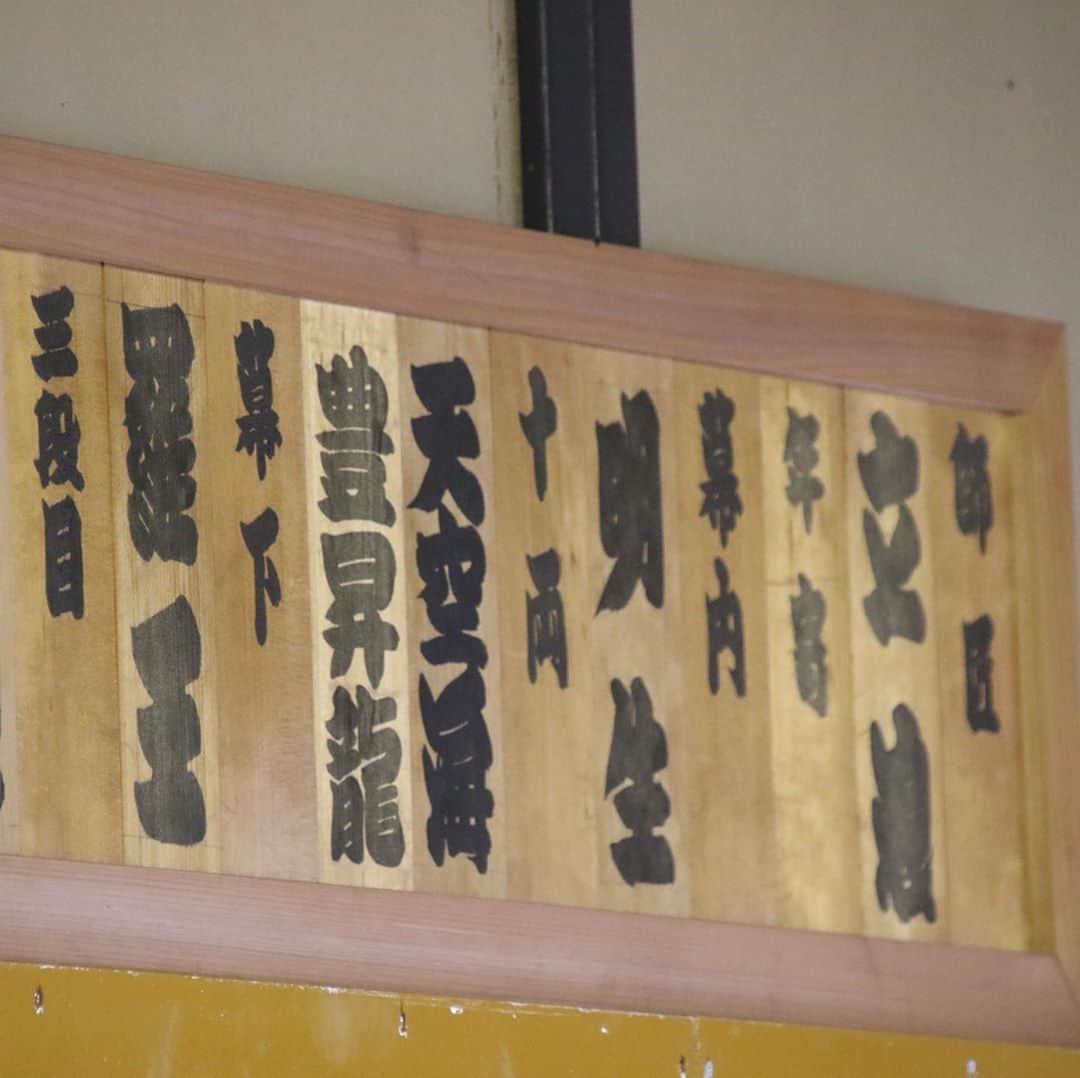 師匠
立浪
年寄
幕内
明生
十両
天空海
豊昇龍
幕下
羅王
三段目